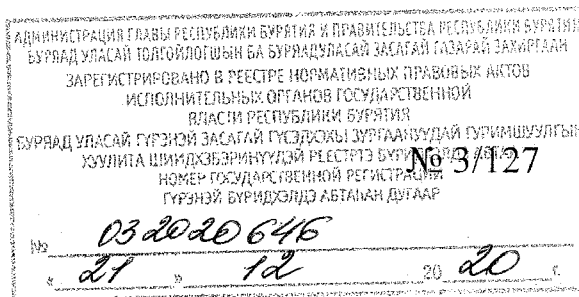 АДМИНИСТРАЦИЯ ГЛАВЫ РЕСПУБЛИКИ БУРЯТИЯ И ПРАВИТЕЛЬСТВА РЕСПУБЛИКИ БУРЯТИЯ
БУРЯАД УЛАСАЙ ТОЛГОЙЛОГШЫН БА БУРЯАД УЛАСАЙ ЗАСАГАЙ ГАЗАРАЙ ЗАХИРГААН
ЗАРЕГИСТРИРОВАНО В РЕЕСТРЕ НОРМАТИВНЫХ ПРАВОВЫХ АКТОВ
ИСПОЛНИТЕЛЬНЫХ ОРГАНОВ ГОСУДАРСТВЕННОЙ
ВЛАСТИ РЕСПУБЛИКИ БУРЯТИЯ
БУРЯАД УЛАСАЙ ГҮРЭНЭЙ ЗАСАГАЙ ГҮЙСЭДХЭХЫ ЗУРГААНУУДАЙ ГУРИМШУУЛГЫН
ХУУЛИТА ШИИДХЭБЭРИНҮҮДЭЙ РЕЕСТРТЭ
№ 3/127
НОМЕР ГОСУДАРСТВЕННОЙ РЕГИСТРАЦИИ
ГҮРЭНЭЙ БҮРИДХЭЛДЭ АБТАҺАН ДУГААР
№ 032020646
« 21 » 12 20 20 г.